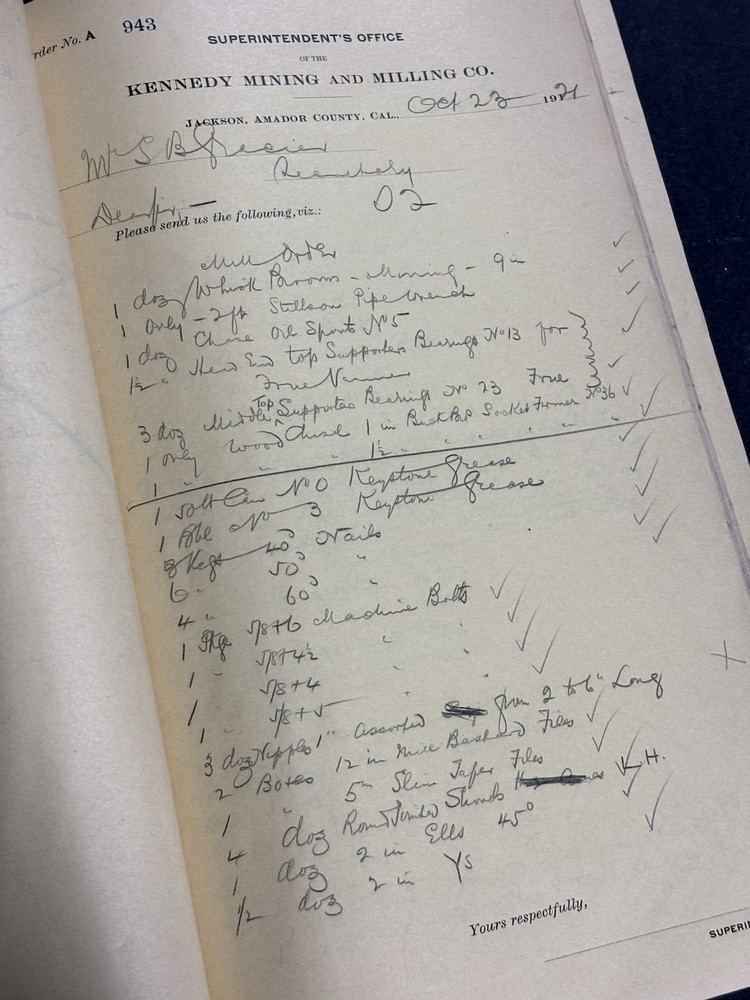 rder No. A 943
SUPERINTENDENT'S OFFICE
OF THE
KENNEDY MINING AND MILLING CO.
JACKSON, AMADOR COUNTY, CAL., Oct 23 1921
Mr S B
Secretary
Dear Sir,—
Please send us the following, viz.: D2
Mill Order
1 doz Whisk Brooms - - 9 in
1 only - 2 ft Stillson Pipe Wrench
1 doz Chase Oil Spouts No 5
1½ " Head End top Supporter Bearings No 13 for
True Vanner
3 doz Middle Top Supporter Bearings No 23 True
1 only Wood Chisel 1 in Buck Bros Socket Firmer No 36
1 " " " 1½ " " " " "
1 Can No 0 Keystone Grease
1 Bbl No 3 Keystone Grease
8 Kegs 40D Nails
6 " 50D "
4 " 60D "
1 Pkg 5/8+6 Machine Bolts
1 " 5/8+4½ " "
1 " 5/8+4 " "
1 " 5/8+5
3 doz Nipples 1" assorted from 2 to 6" Long
2 Boxes 12 in Mill Bastard Files
1 " 5 in Slim Taper Files
4 doz Round Pointed Shovels L.H.
1 doz 2 in Ells 45°
1/2 doz 2 in Ys
Yours respectfully,
SUPERI